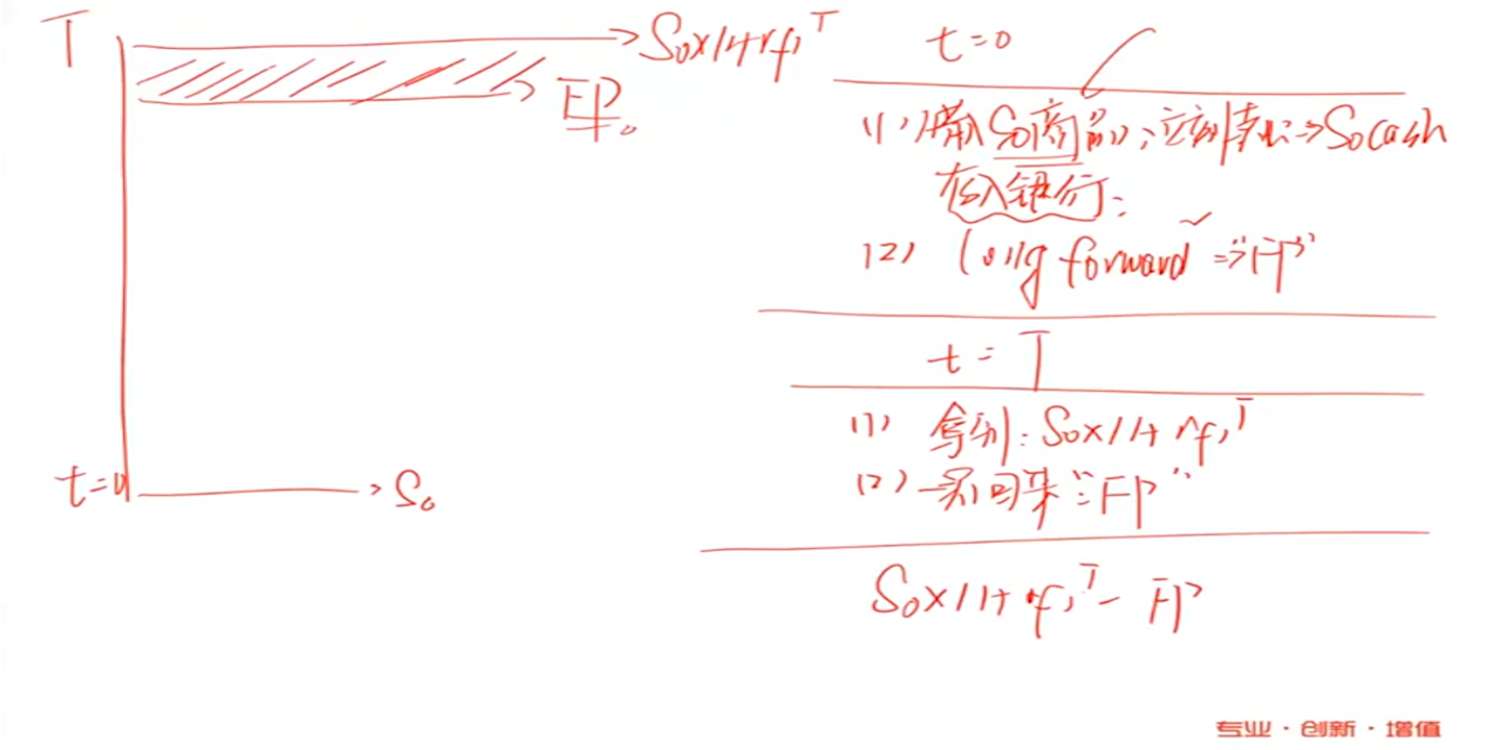 T
S₀×(1+rf)ᵀ
FP。
t=0
S₀
t=0
(1) 借入S₀商品，立刻卖出⇒S₀cash
存入银行；
(2) long forward ⇒"FP"
t=T
(1) 拿到：S₀×(1+rf)ᵀ
(2) 买回来"FP"
S₀×(1+rf)ᵀ-FP
专业·创新·增值